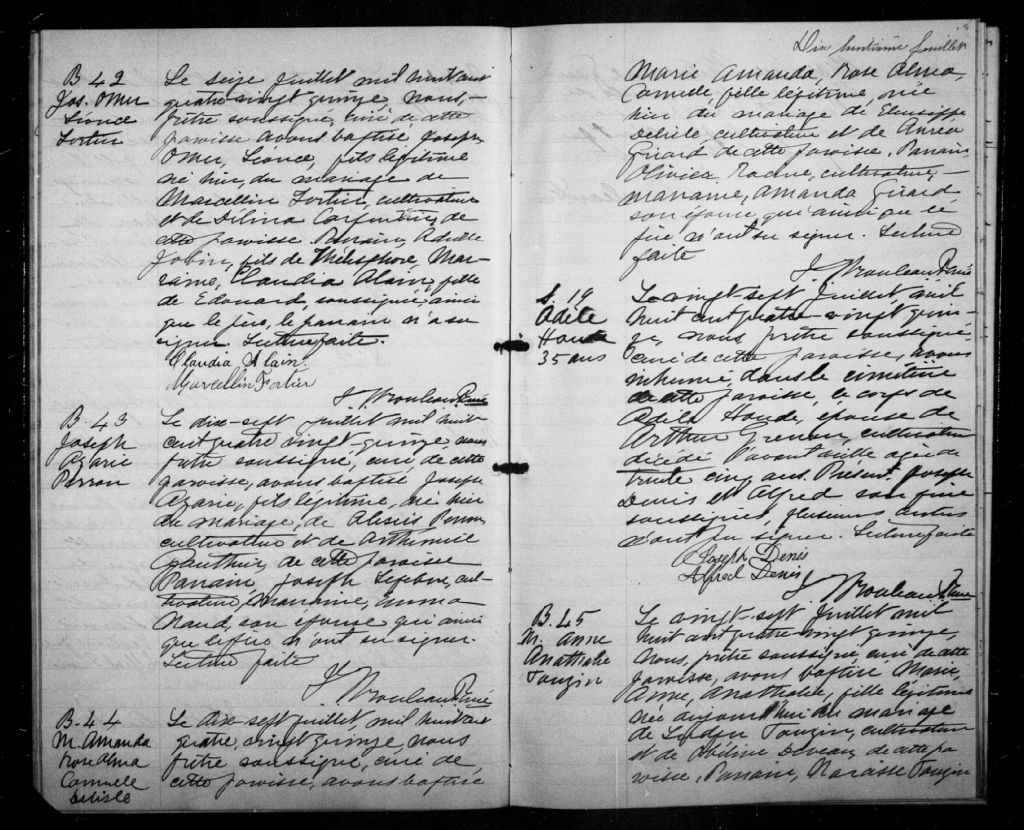 B 42
Jos. Omer
Léonce
Fortier
Le seize juillet mil huit cent
quatre vingt quinze, nous,
prêtre soussigné, curé de cette
paroisse avons baptisé Joseph
Omer, Léonce, fils légitime
né hier, du mariage de
Marcellin Fortier, cultivateur
et de Délina Carpentier, de
cette paroisse. Parrain, Adélle
Jobin, fils de Thélesphore Mar-
raine, Claudia Alain, fille
de Edouard, soussignée, ainsi
que le père, le parrain n'a su
signer. Lecture faite.
Claudia Alain.
Marcellin Fortier
J Rouleau Ptre
B. 43
Joseph
Azarie
Perron
Le dix-sept juillet mil huit
cent quatre vingt-quinze nous
prêtre soussigné, curé de cette
paroisse, avons baptisé Joseph
Azarie, fils légitime, né hier
du mariage, de Alexis Perron
cultivateur et de Arthémise
Gauthier de cette paroisse
Parrain, Joseph Lefebvre, cul-
tivateur, Marraine, Emma
Naud, son épouse qui ainsi
que le père n'ont su signer.
Lecture faite
J Rouleau Ptre
B-44
M. Amanda
Rose Alma
Camille
Delisle
Le dix-sept juillet, mil huit cent
quatre vingt quinze, nous
prêtre soussigné, curé de
cette paroisse, avons baptisé
Dix huitième feuillet
Marie Amanda, Rose Alma,
Camille, fille légitime, née
hier du mariage de Eleusippe
Delisle cultivateur et de Aurea
Girard de cette paroisse. Parrain
Olivier Racine, cultivateur,
marraine, Amanda Girard,
son épouse qui ainsi que le
père n'ont su signer. Lecture
faite
J Rouleau Ptre
S. 19
Adèle
Houde
35 ans
Le vingt-sept juillet mil
huit cent quatre-vingt quin-
ze, nous prêtre soussigné
curé de cette paroisse, avons
inhumé, dans le cimetière
de cette paroisse, le corps de
Adèle Houde, épouse de
Arthur Grenon, cultivateur
décédé l'avant veille agée de
trente cinq ans. Présent Joseph
Denis et Alfred son frère
soussignés, plusieurs autres
n'ont pu signer. Lecture faite
Joseph Denis
Alfred Denis
J Rouleau Ptre
B. 45
M. Anne
Anathalie
Tousin
Le vingt-sept juillet mil
huit cent quatre-vingt quinze,
Nous, prêtre soussigné, curé de cette
paroisse, avons baptisé Marie,
Anne, Anathalie, fille légitime
née aujourd'hui du mariage
de Tousin, cultivateur
et de de cette pa
roisse, Parrain, Narcisse Tousin